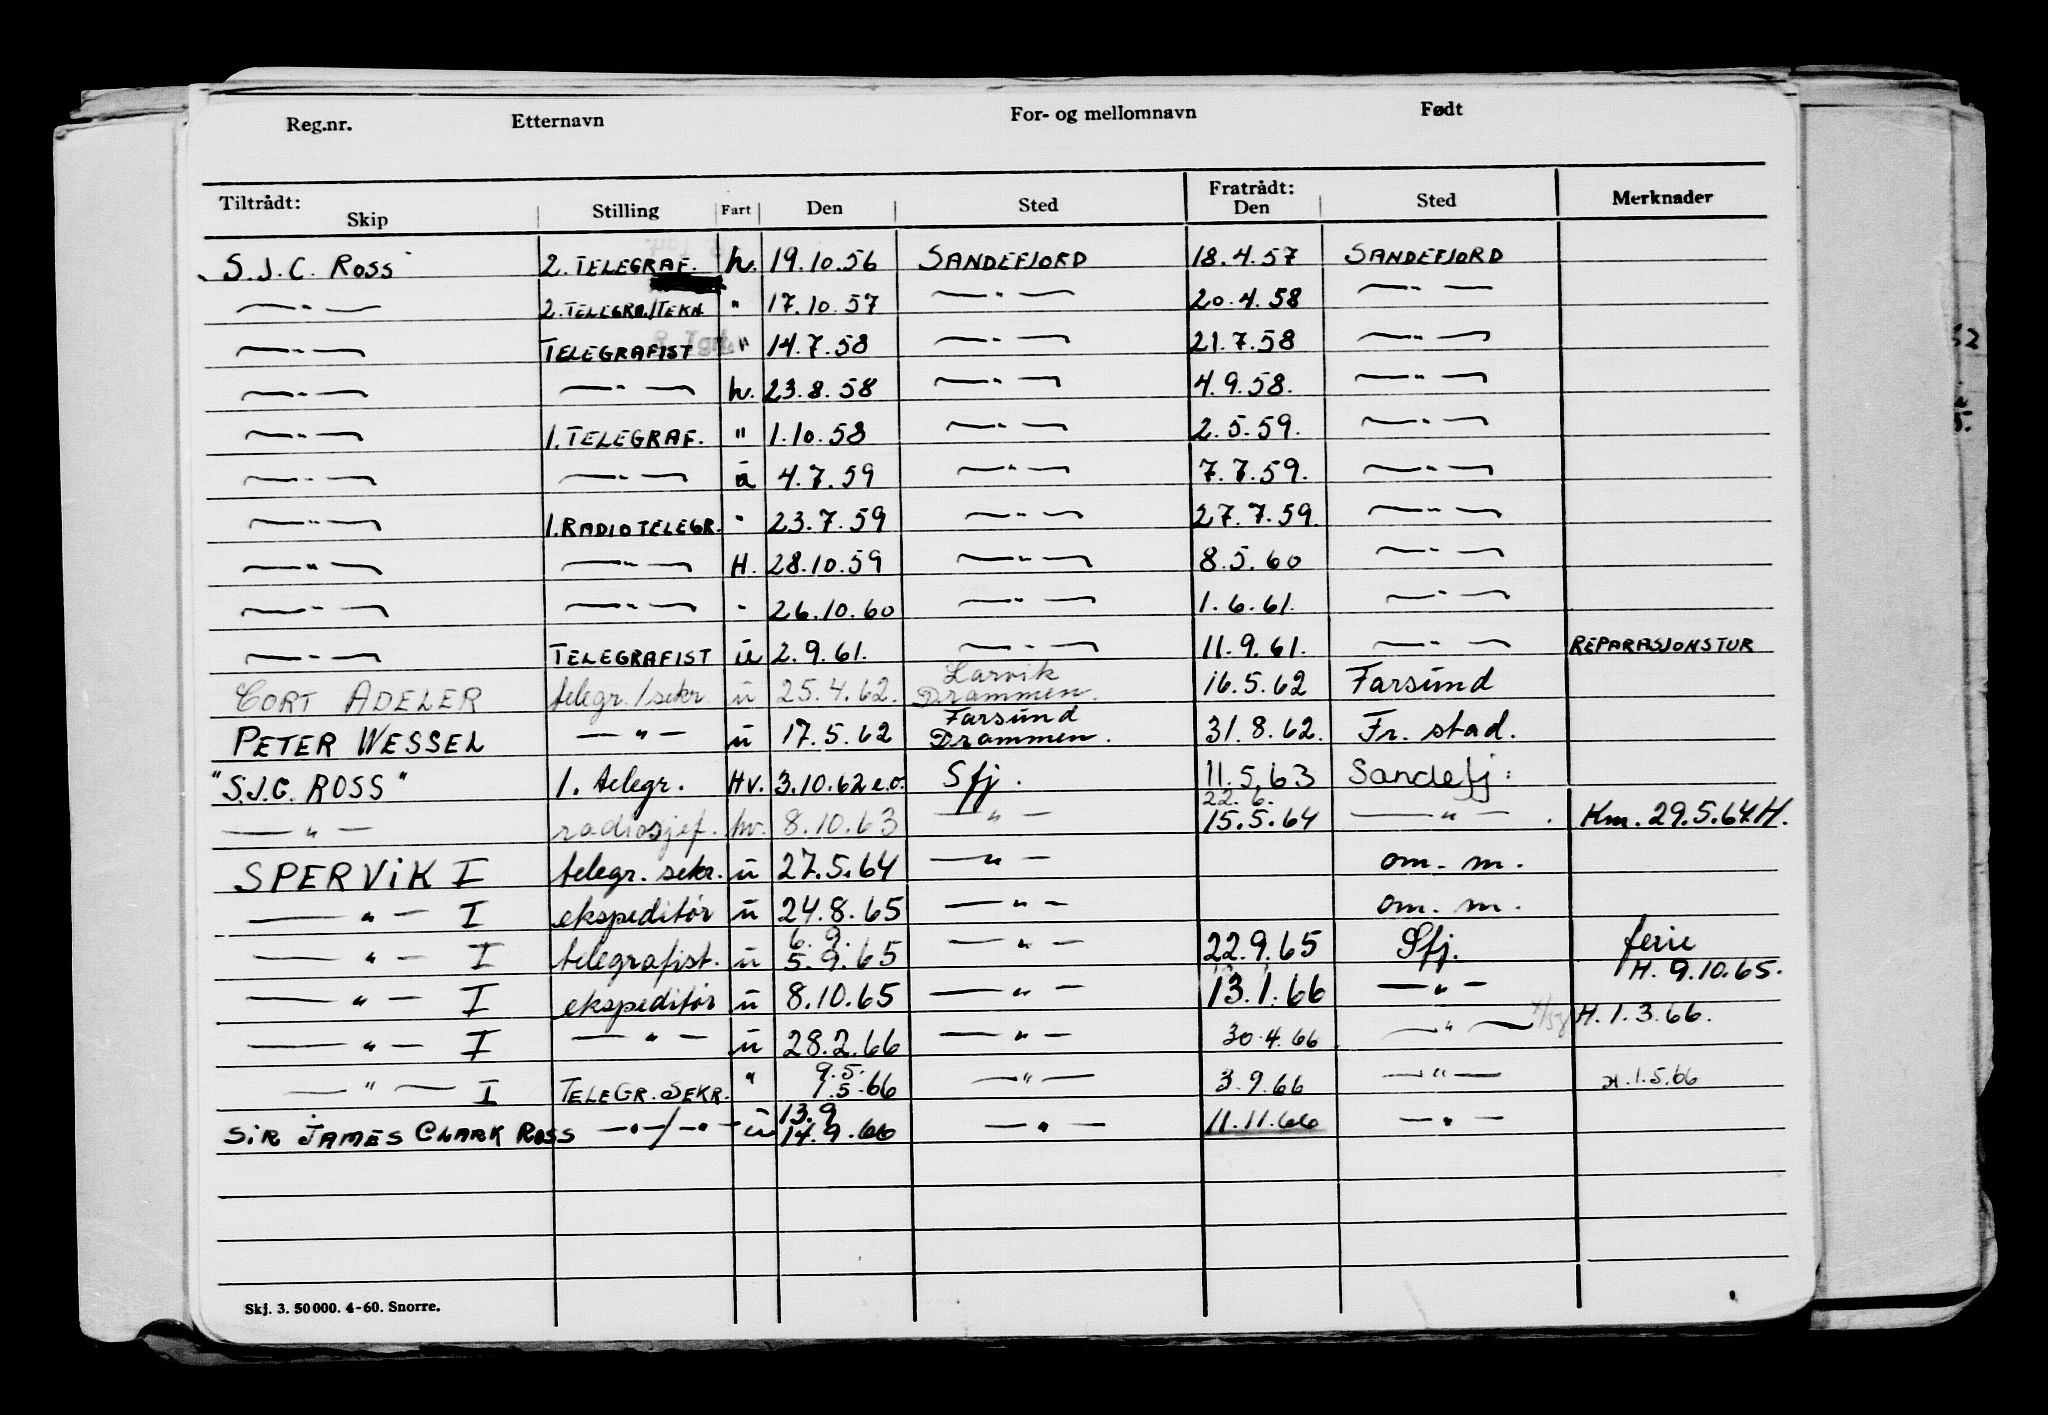 Reg.nr. Etternavn For- og mellomnavn Født
Tiltrådt: Skip Stilling Fart Den Sted Fratrådt: Den Sted Merknader
S.J.C. ROSS 2. TELEGRAF. h. 19.10.56 SANDEFJORD 18.4.57 SANDEFJORD
—"— 2. TELEGRA./TEKN. " 17.10.57 —"— 20.4.58 —"—
—"— TELEGRAFIST " 14.7.58 —"— 21.7.58 —"—
—"— —"— h. 23.8.58 —"— 4.9.58. —"—
—"— 1. TELEGRAF. " 1.10.58 —"— 2.5.59. —"—
—"— —"— u 4.7.59 —"— 7.7.59. —"—
—"— 1. RADIOTELEGR. " 23.7.59 —"— 27.7.59. —"—
—"— —"— H. 28.10.59 —"— 8.5.60 —"—
—"— —"— " 26.10.60 —"— 1.6.61. —"—
—"— TELEGRAFIST u 2.9.61. —"— 11.9.61. —"— REPARASJONSTUR
CORT ADELER telegr./sekr. u 25.4.62. Larvik Drammen. 16.5.62 Farsund
PETER WESSEL —"— u 17.5.62 Farsund Drammen. 31.8.62. Fr. stad.
"S.J.C. ROSS" 1. telegr. Hv. 3.10.62 e.o. Sfj. 11.5.63 Sandefj:
—"— radiosjef. hv. 8.10.63 —"— 22.6. 15.5.64 —"— . Km. 29.5.64 H.
SPERVIK I telegr. sekr. u 27.5.64 —"— om. m.
—"— I ekspeditør u 24.8.65 —"— om. m.
—"— I telegrafist. u 6.9. 5.9.65 —"— 22.9.65 Sfj. ferie
H. 9.10.65.
—"— I ekspeditør u 8.10.65 —"— 13.1.66 —"—
—"— I —"— u 28.2.66 —"— 30.4.66 —"— H. 1.3.66.
—"— I TELEGR. SEKR. " 9.5. 1.5.66 —"— 3.9.66 —"— H. 1.5.66
SIR JAMES CLARK ROSS —"—/—"— u 13.9 14.9.66 —"— 11.11.66 —"—
Skj. 3. 50 000. 4-60. Snorre.